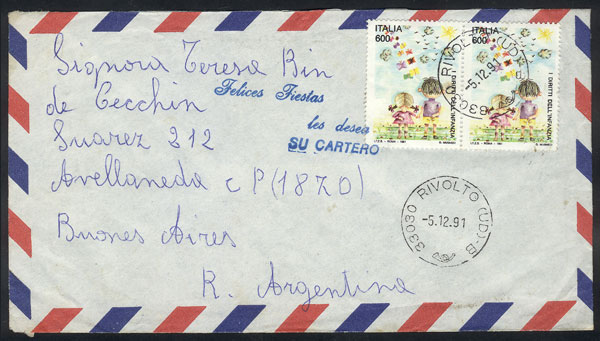 ITALIA
600
I DIRITTI DELL'INFANZIA
ITALIA
600
I DIRITTI DELL'INFANZIA
33030 RIVOLTO (UD)
-5.12.91
Signora Teresa Bin
de Cecchin
Suarez 212
Avellaneda CP(1870)
Buones Aires
R. Argentina
Felices Fiestas
les desea
SU CARTERO
33030 RIVOLTO (UD)-B
-5.12.91